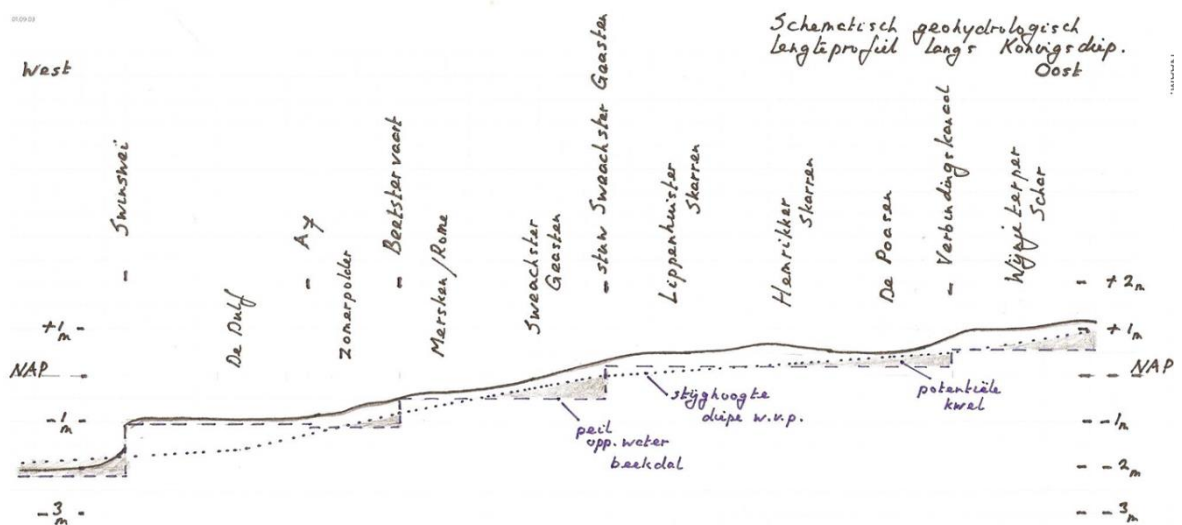 01.09.03
Schematisch geohydrologisch
Lengteprofiel Langs Koningsdiep.
West
Oost
Swinswei
De Dulf
A7
Zomerpolder
Beetstervaart
Mersken/Rome
Sweachster
Geasten
stuw Sweachster Geasten
Lippenhuister
Skarren
Hemrikker
Skarren
De Poasen
Verbindingskanaal
Wijnjeterper
Schar
+2m
+1m
+1m
NAP
NAP
-1m
-1m
-2m
-3m
-3m
stijghoogte
diepe w.v.p.
potentiële
kwel
peil
opp. water
beekdal